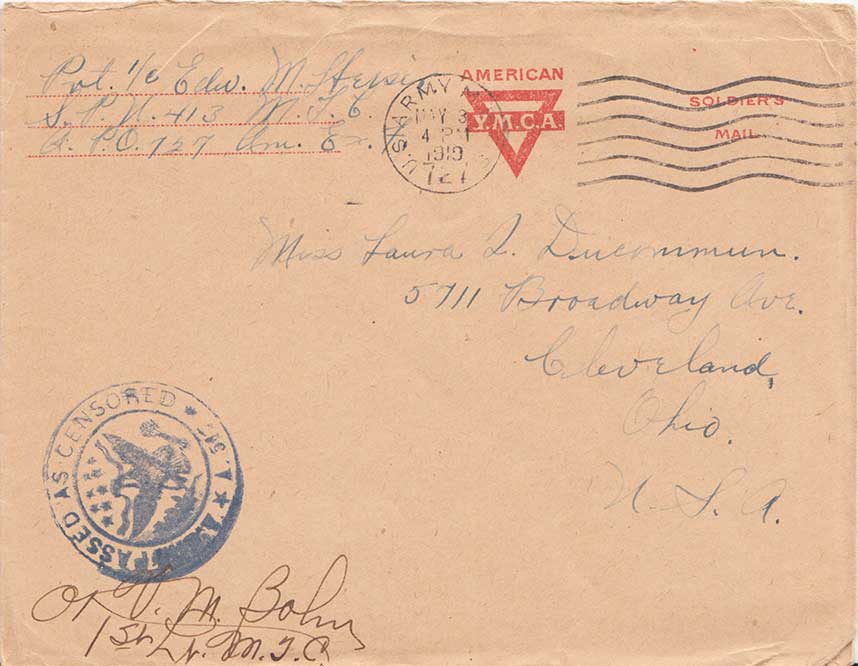 Pvt. 1/c Edw. M.
S. P. U. 413 M. T. C.
A. P.O. 727 Am. Ex.
U.S. ARMY
MAY 3
4 PM
1919
727
AMERICAN
Y.M.C.A.
SOLDIER'S
MAIL
Miss Laura L. Ducommun.
5711 Broadway Ave.
Cleveland,
Ohio.
U. S. A.
PASSED AS CENSORED
OK V. M. Bohn
1st Lt. M.T.C.